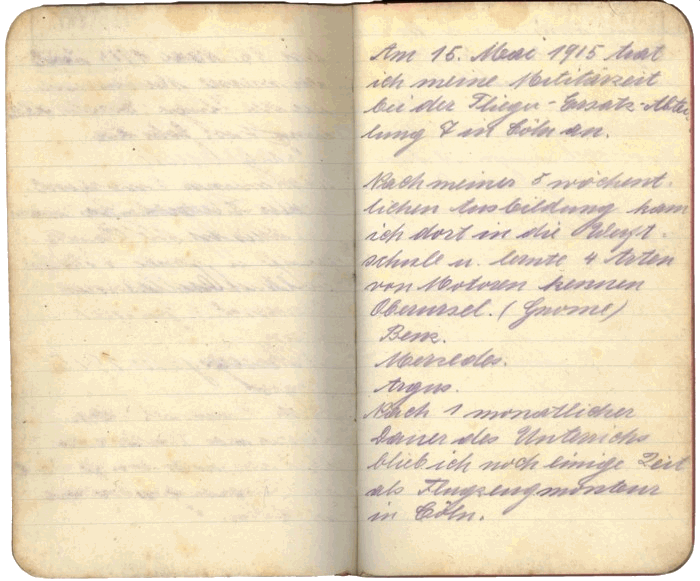 Am 15. Mai 1915 trat
ich meine Militärzeit
bei der Flieger-Ersatz-Abtei
lung 7 in Cöln an.
Nach meiner 8 wöchent-
lichen Ausbildung kam
ich dort in die
schule u. lernte 4 Arten
von Motoren kennen
Oberursel. (Gnome)
Benz.
Mercedes.
Argus.
Nach 1 monatlicher
Dauer des Unterrichs
blieb ich noch einige Zeit
als Flugzeugmonteur
in Cöln.